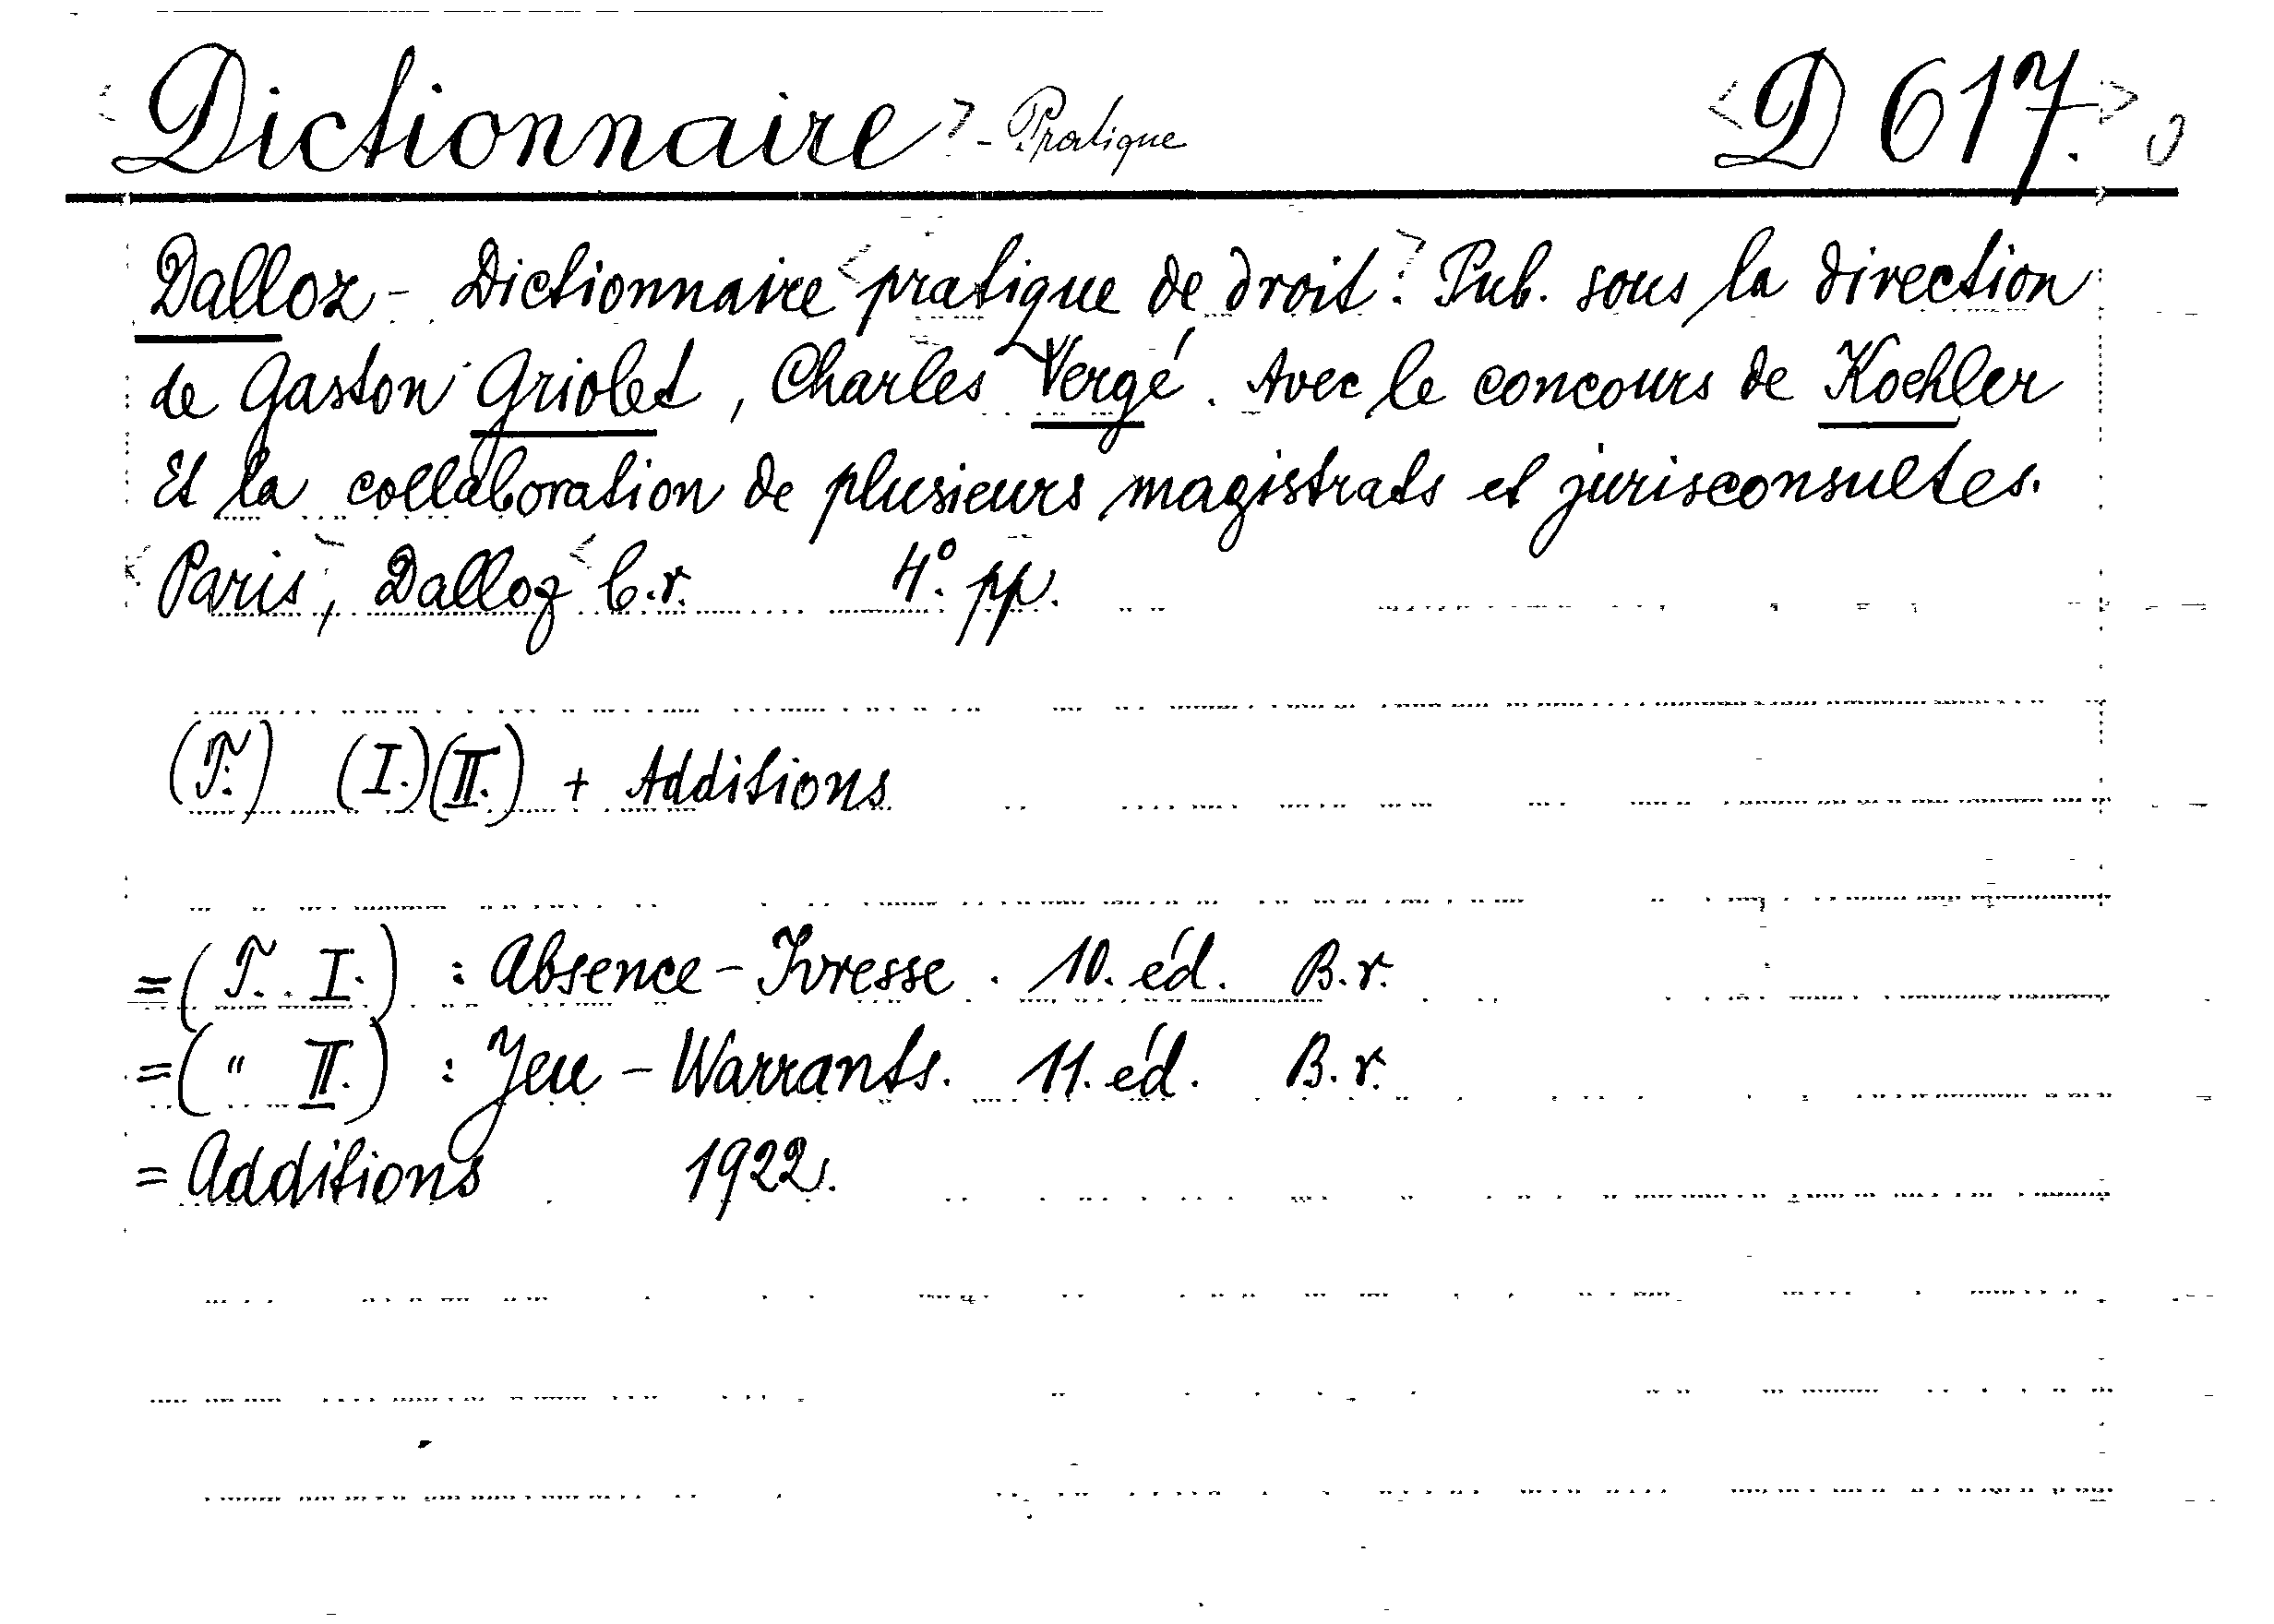 <Dictionnaire> - Pratique <D 617.> J
Dalloz - Dictionnaire <pratique de droit>. Pub. sous la direction
de Gaston Griolet, Charles Vergé. Avec le concours de Koehler
Et la collaboration de plusieurs magistrats et jurisconsultes.
<Paris, Dalloz> b.r. 4° pp.
(T.) (I.)(II.) + Additions
=(T. I.) : Absence - Ivresse. 10. éd. B.r.
=( " II.) : Jeu - Warrants. 11. éd. B.r.
= Additions 1922.